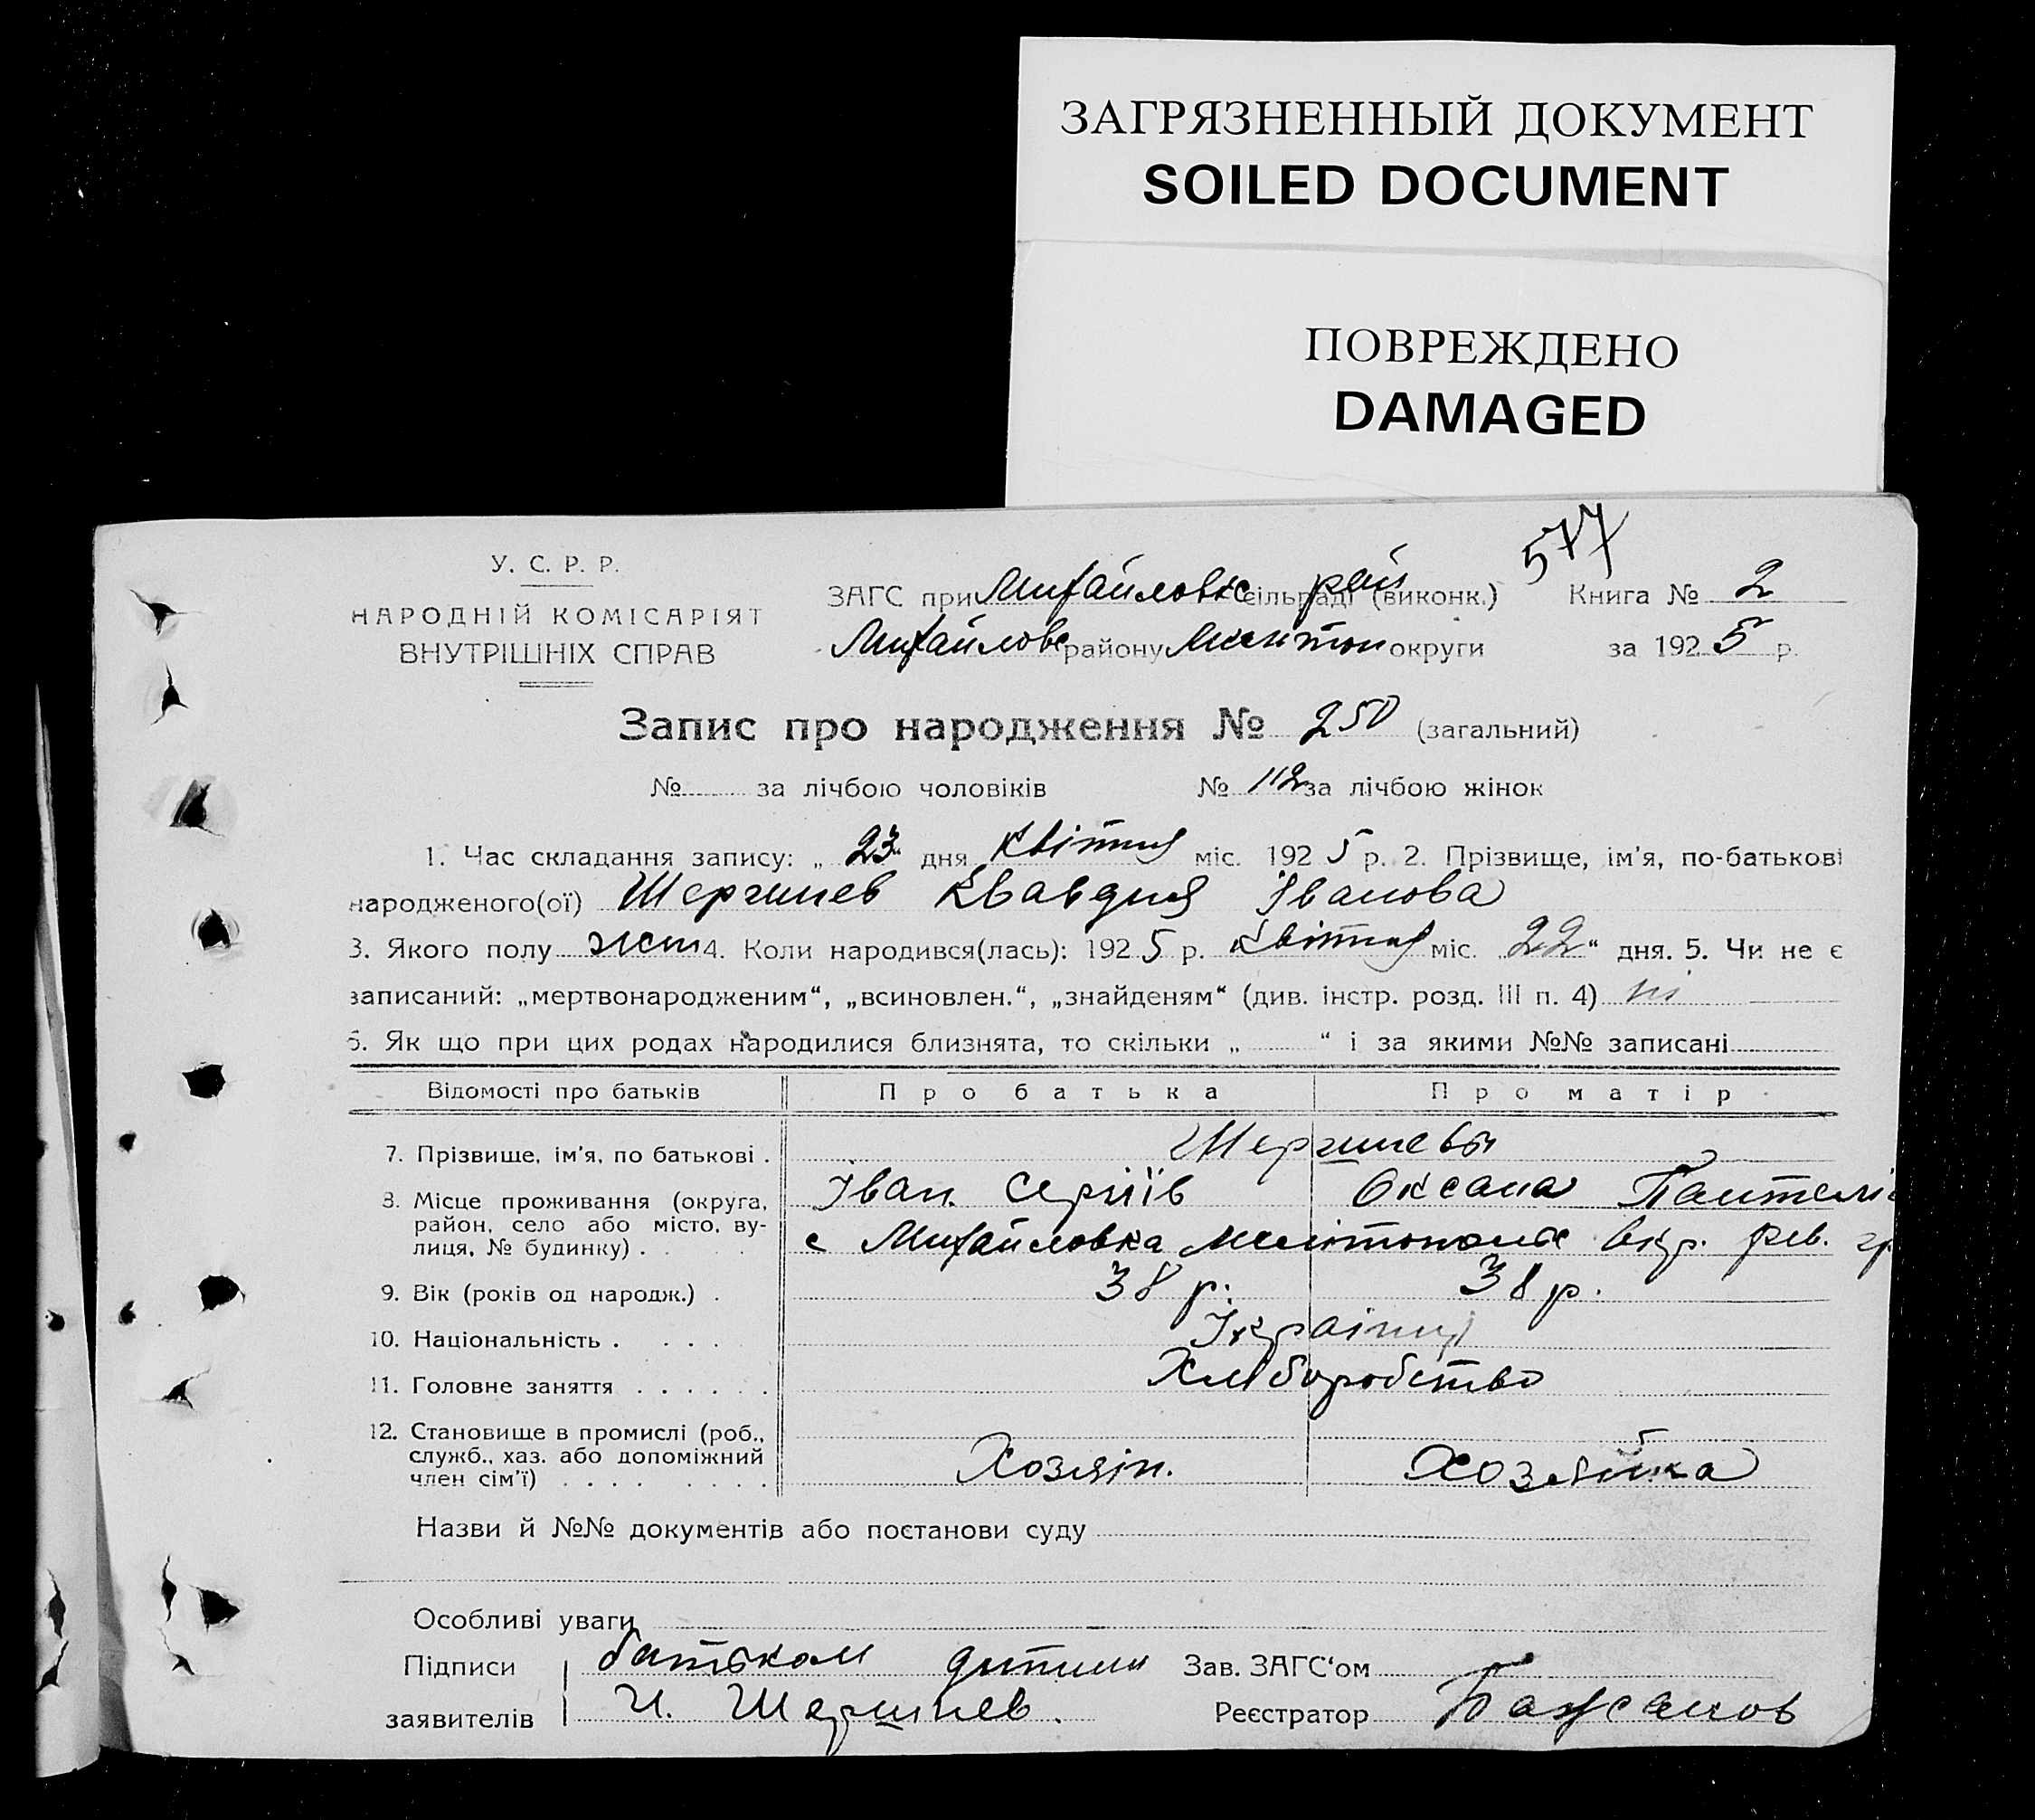 ЗАГРЯЗНЕННЫЙ ДОКУМЕНТ
SOILED DOCUMENT
ПОВРЕЖДЕНО
DAMAGED
577
У. С. Р. Р.
НАРОДНІЙ КОМІСАРІЯТ
ВНУТРІШНІХ СПРАВ
ЗАГС при Михайловс сільраді рай (виконк.) Книга № 2
Михайловс району Мелітоп округи за 1925 р.
Запис про народження № 250 (загальний)
№ за лічбою чоловіків № 112 за лічбою жінок
1. Час складання запису: „ 23 " дня Квітня міс. 1925 р. 2. Прізвище, ім'я, по-батькові
народженого(ої) Шергинев Квавдия Іванова
3. Якого полу жен 4. Коли народився(лась): 1925 р. Квітня міс. 22 " дня. 5. Чи не є
записаний: „мертвонародженим", „всиновлен.", „знайденям" (див. інстр. розд. III п. 4) ні
6. Як що при цих родах народилися близнята, то скільки „ " і за якими №№ записані
Відомості про батьків Про батька Про матір
7. Прізвище, ім'я, по батькові . Шергиневы
Іван Сергіїв Оксана
8. Місце проживання (округа,
район, село або місто, ву-
лиця, № будинку) . с Михайловка окр. рев.
9. Вік (років од народж.) . 38 р. 38 р.
10. Національність . . . . Українці
11. Головне заняття . . . . . . Хліборобство
12. Становище в промислі (роб.,
служб., хаз. або допоміжний
член сім'ї) . . . . . . . . Хозяін. Хозяйка
Назви й №№ документів або постанови суду
Особливі уваги
Підписи батьком дитини Зав. ЗАГС'ом
заявителів И. Шергинев. Реєстратор Бажанов